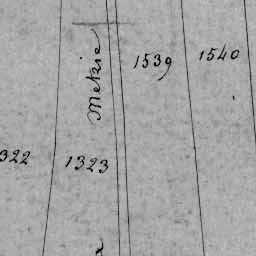 1539
1540
322
1323